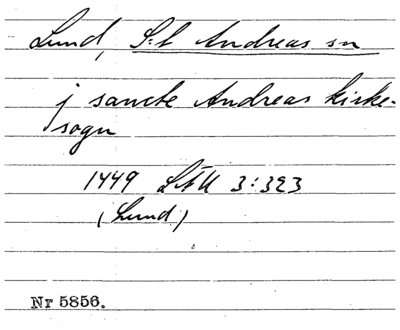 Lund, S:t Andreas sn
j sancte Andreas kirke-
sogn
1449 LÄU 3:323
(Lund)
Nr 5856.